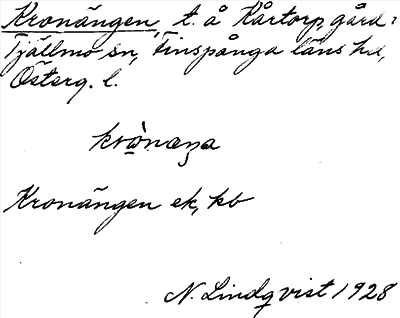 Kronängen, t. å Kårtorp, gård:
Tjällmo sn, Finspånga läns hd,
Österg. l.
Kronängen ek, kb
N. Lindqvist 1928